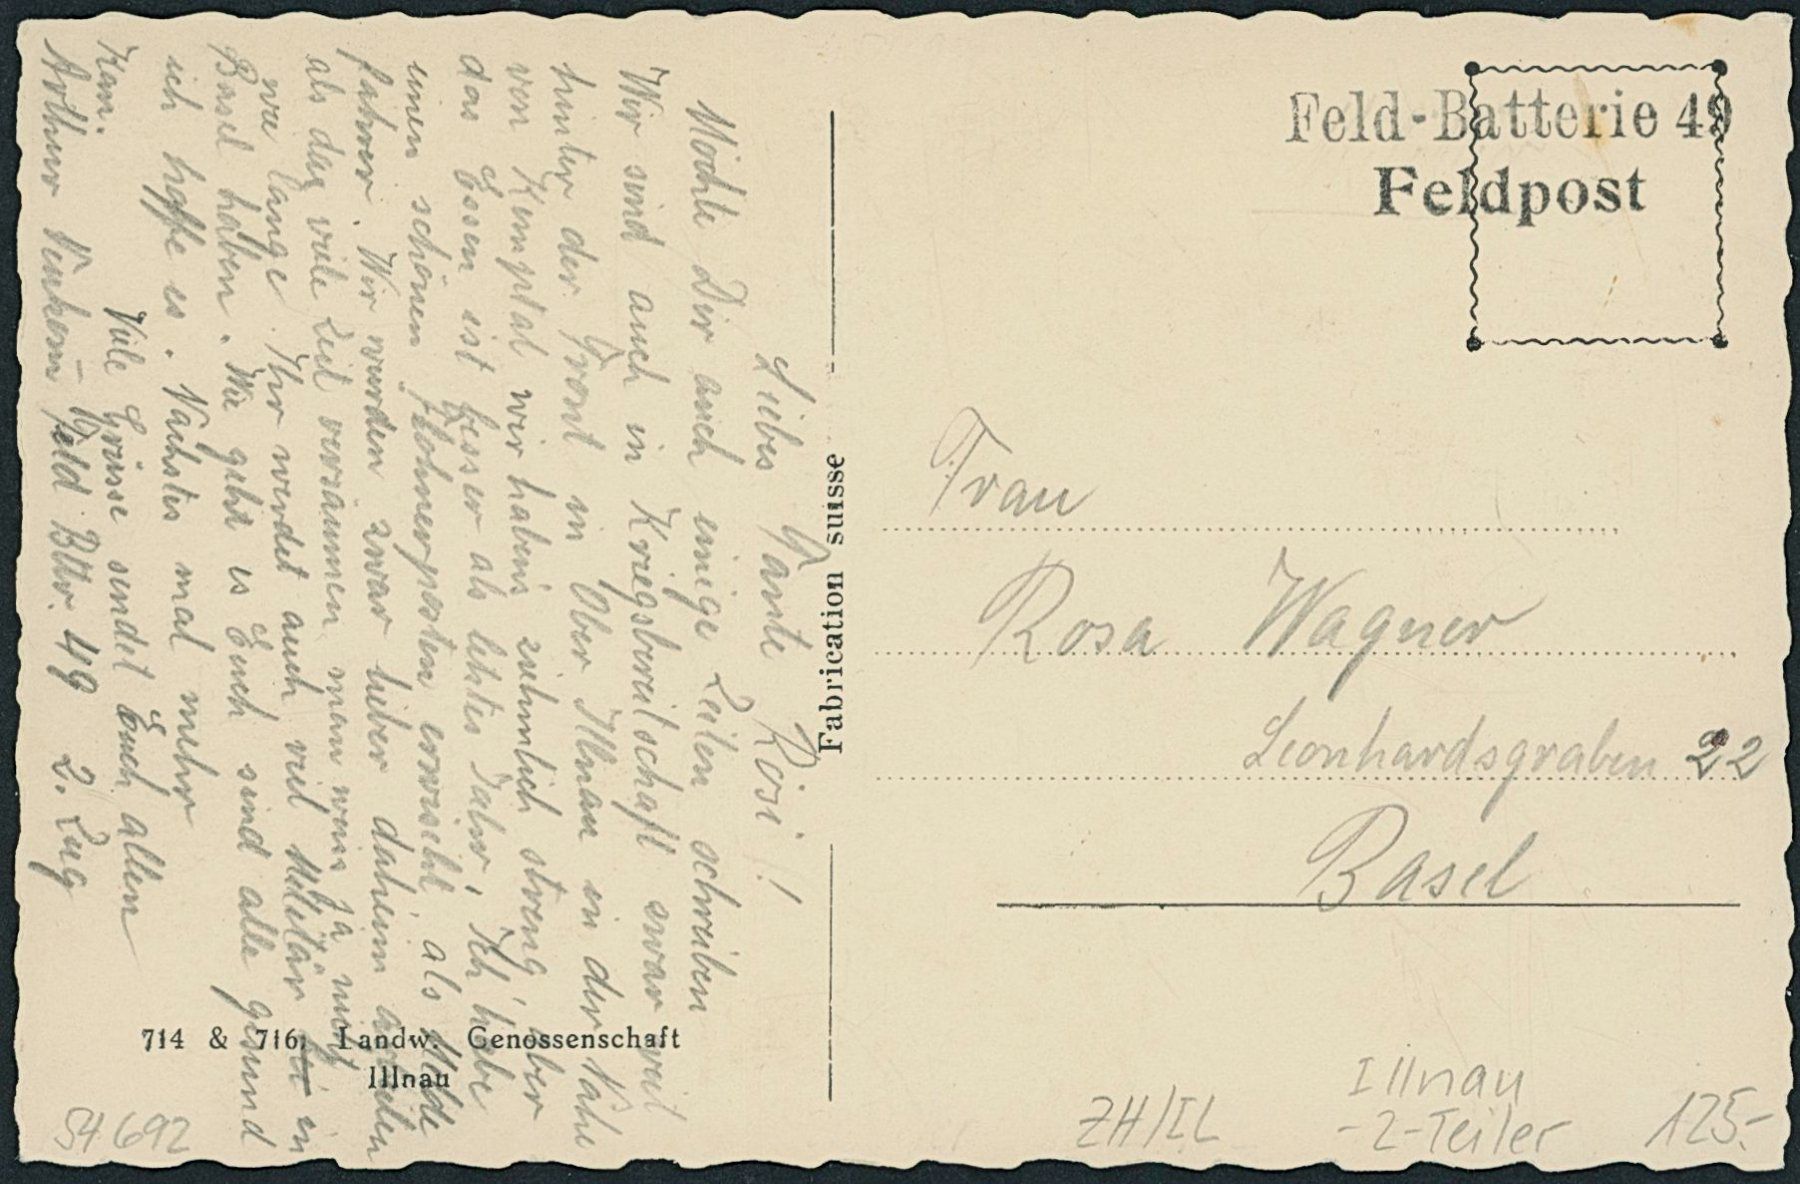 Liebes Tante Rösi!
Möchte Dir auch einige Zeilen schreiben
Wir sind auch in Kriegsbereitschaft zwar weit
hinter der Front in Ober Illnau in der Nähe
von Kemptal wir habens ziemlich streng aber
das Essen ist besser als letztes Jahr, Ich habe
einen schönen erwischt als
fahrer. Wir wurden zwar lieber daheim arbeiten
als das viele Zeit versäumen man weiss ja nicht
wie lange. Ihr werdet auch viel Militär in
Basel haben. Wie geht es Euch sind alle gesund
ich hoffe es. Nächstes mal mehr
Viele Grüsse sendet Euch allen
Kan.
Arthur Feld Bttr. 49 2. Zug
714 & 716. Landw. Genossenschaft
Illnau
54692
Fabrication suisse
Feld-Batterie 49
Feldpost
Frau
Rosa Wagner
Leonhardsgraben 22
Basel
ZH/IL
Illnau
-2-Teiler
125.-